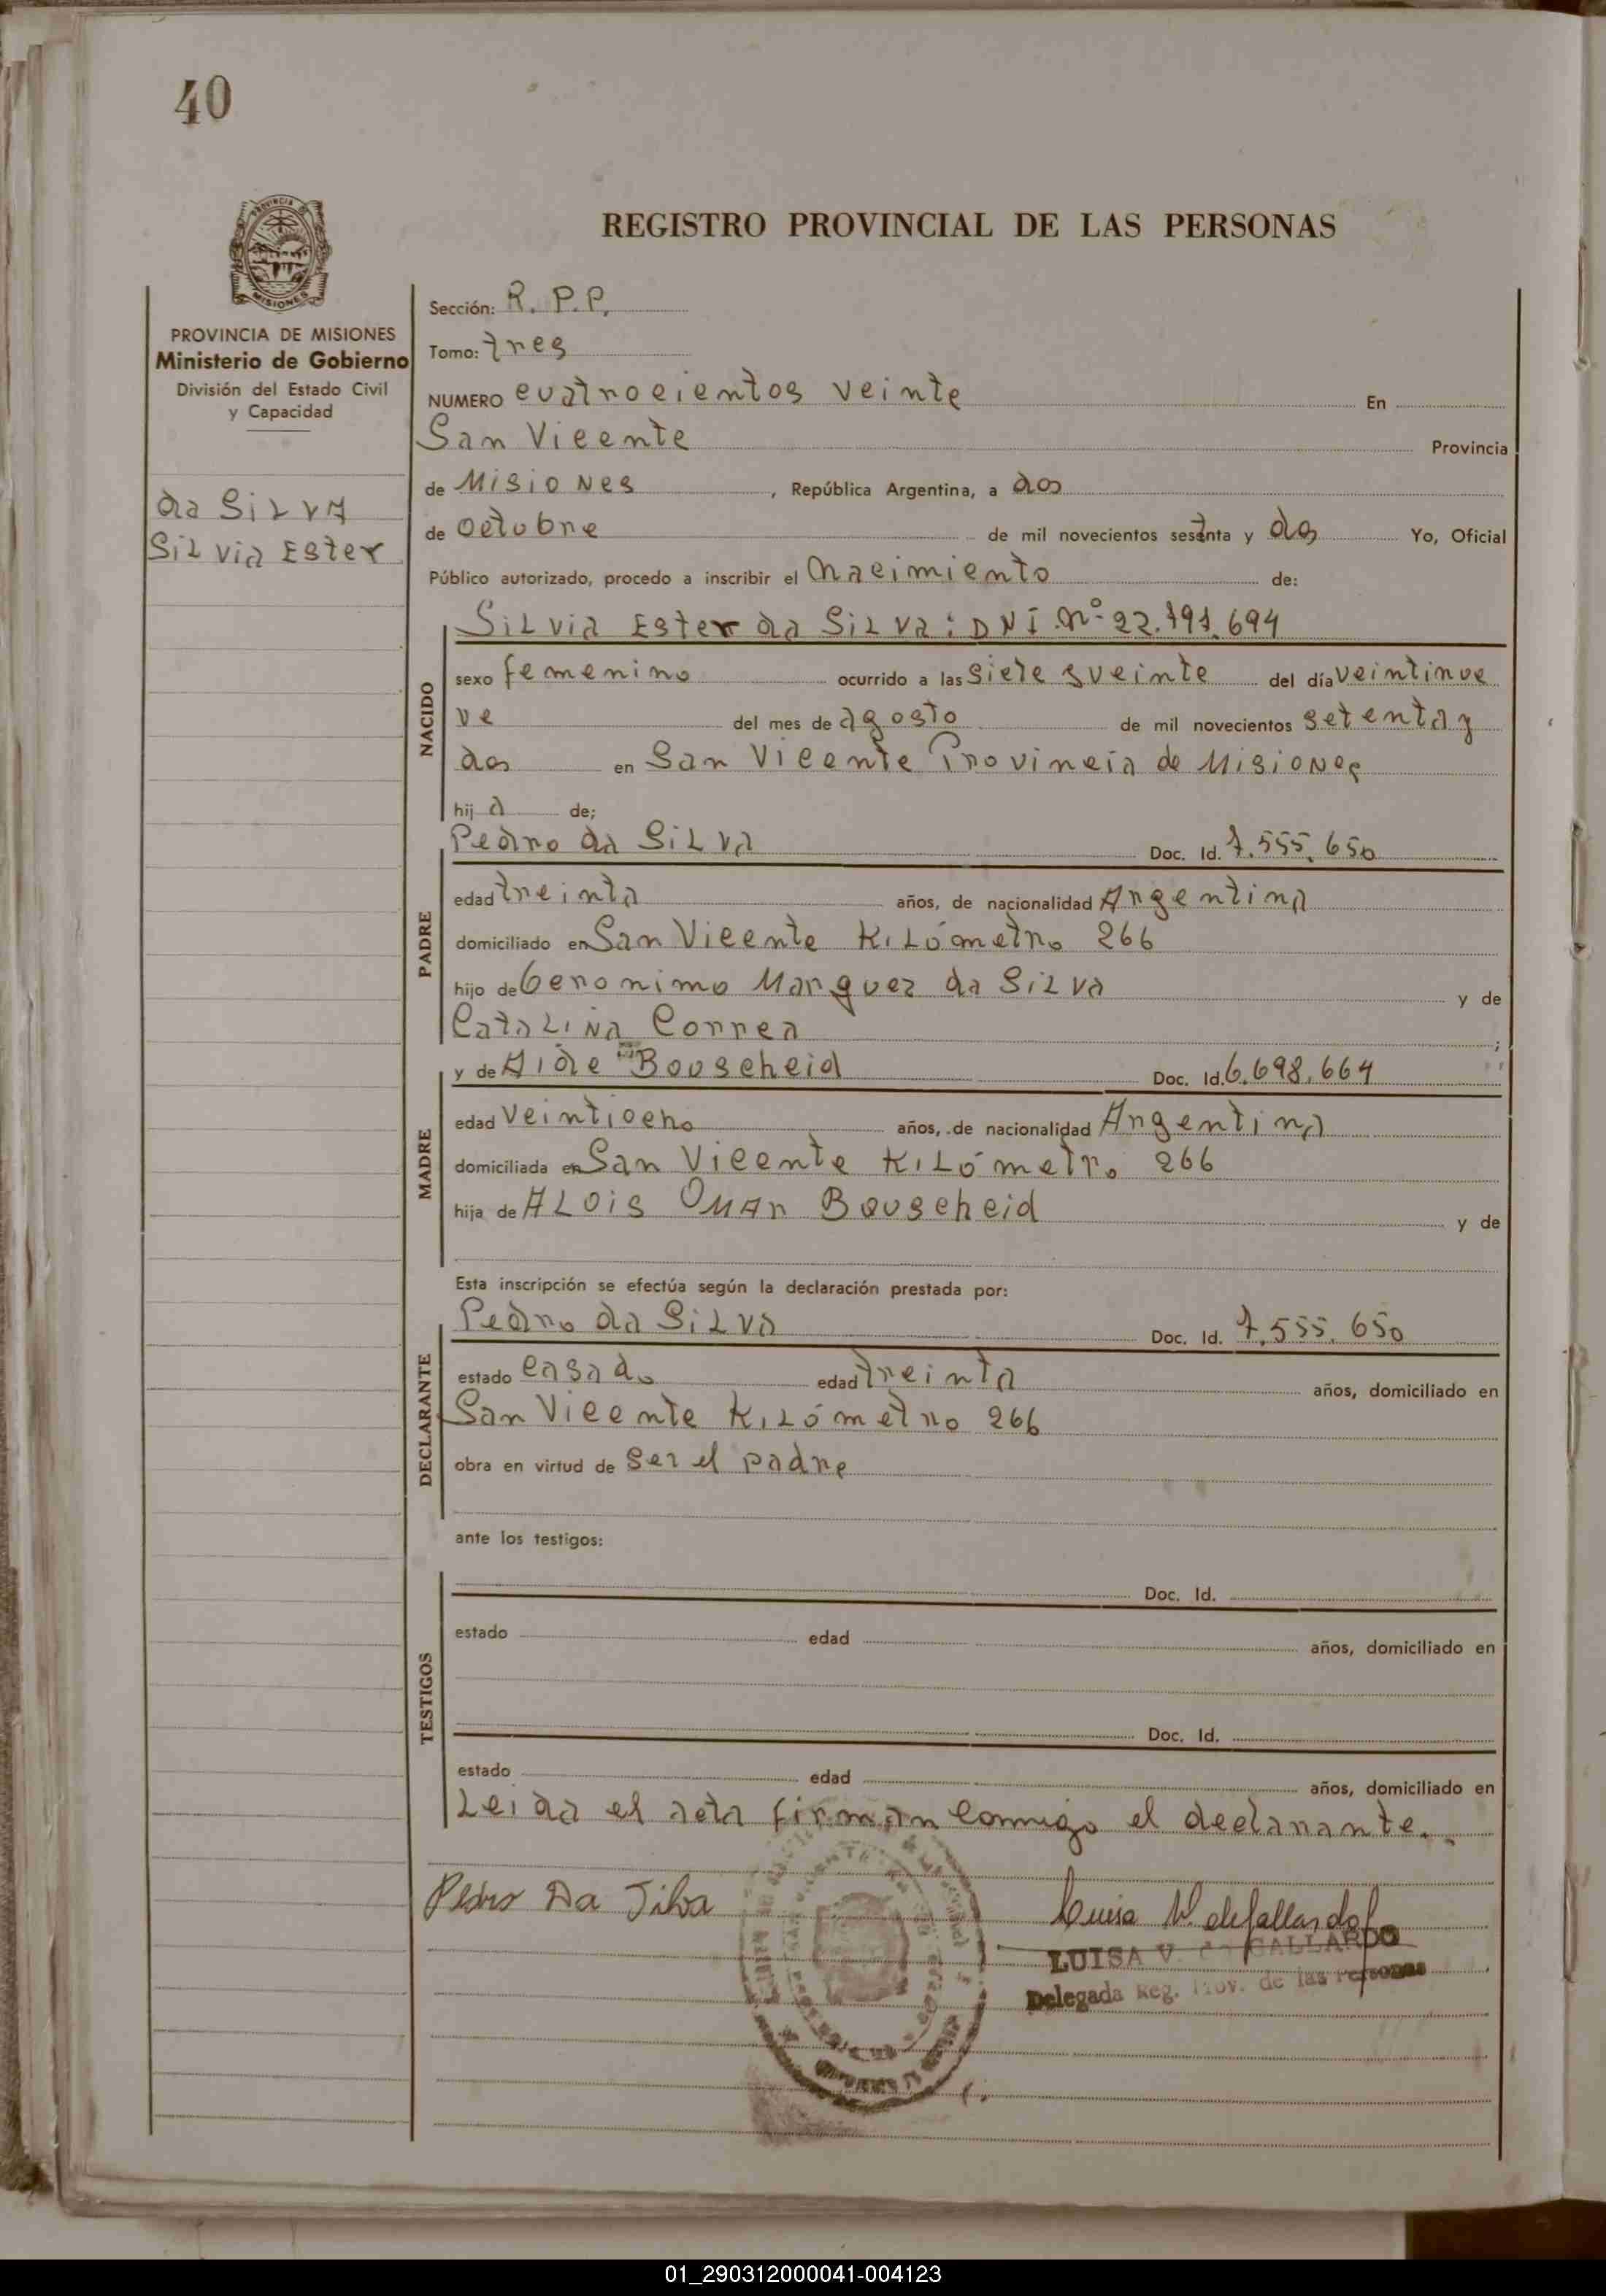 40
REGISTRO PROVINCIAL DE LAS PERSONAS
PROVINCIA
MISIONES
PROVINCIA DE MISIONES
Ministerio de Gobierno
División del Estado Civil
y Capacidad
da SiLVA
SiLvia Ester
Sección: R. P.P.
Tomo: tres
NUMERO cuatrocientos veinte En
San Vicente Provincia
de Misiones, República Argentina, a dos
de octubre de mil novecientos setenta y dos Yo, Oficial
Público autorizado, procedo a inscribir el nacimiento de:
SiLvia Ester da SiLva: DNI Nº 22.791.694
NACIDO
sexo femenino ocurrido a las siete y veinte del día veintinue
ve del mes de agosto de mil novecientos setenta y
dos en San Vicente Provincia de Misiones
hij a de;
PADRE
Pedro da SiLva Doc. Id. 7.555.650
edad treinta años, de nacionalidad Argentina
domiciliado en San Vicente KiLómetro 266
hijo de Geronimo Marquez da SiLva y de
CataLina Correa ;
MADRE
y de Aide Bouscheid Doc. Id. 6.698.664
edad veintiocho años, de nacionalidad Argentina
domiciliada en San Vicente KiLómetro 266
hija de ALois Omar Bouscheid y de
Esta inscripción se efectúa según la declaración prestada por:
DECLARANTE
Pedro da SiLva Doc. Id. 7.555.650
estado casado edad treinta años, domiciliado en
San Vicente KiLómetro 266
obra en virtud de ser el padre
ante los testigos:
TESTIGOS
Doc. Id.
estado edad años, domiciliado en
Doc. Id.
estado edad años, domiciliado en
Leida el acta firman conmigo el declarante.
Pedro Da Silva
Luisa V. de Gallardo
LUISA V. de GALLARDO
Delegada Reg. Prov. de las Personas
01_290312000041-004123